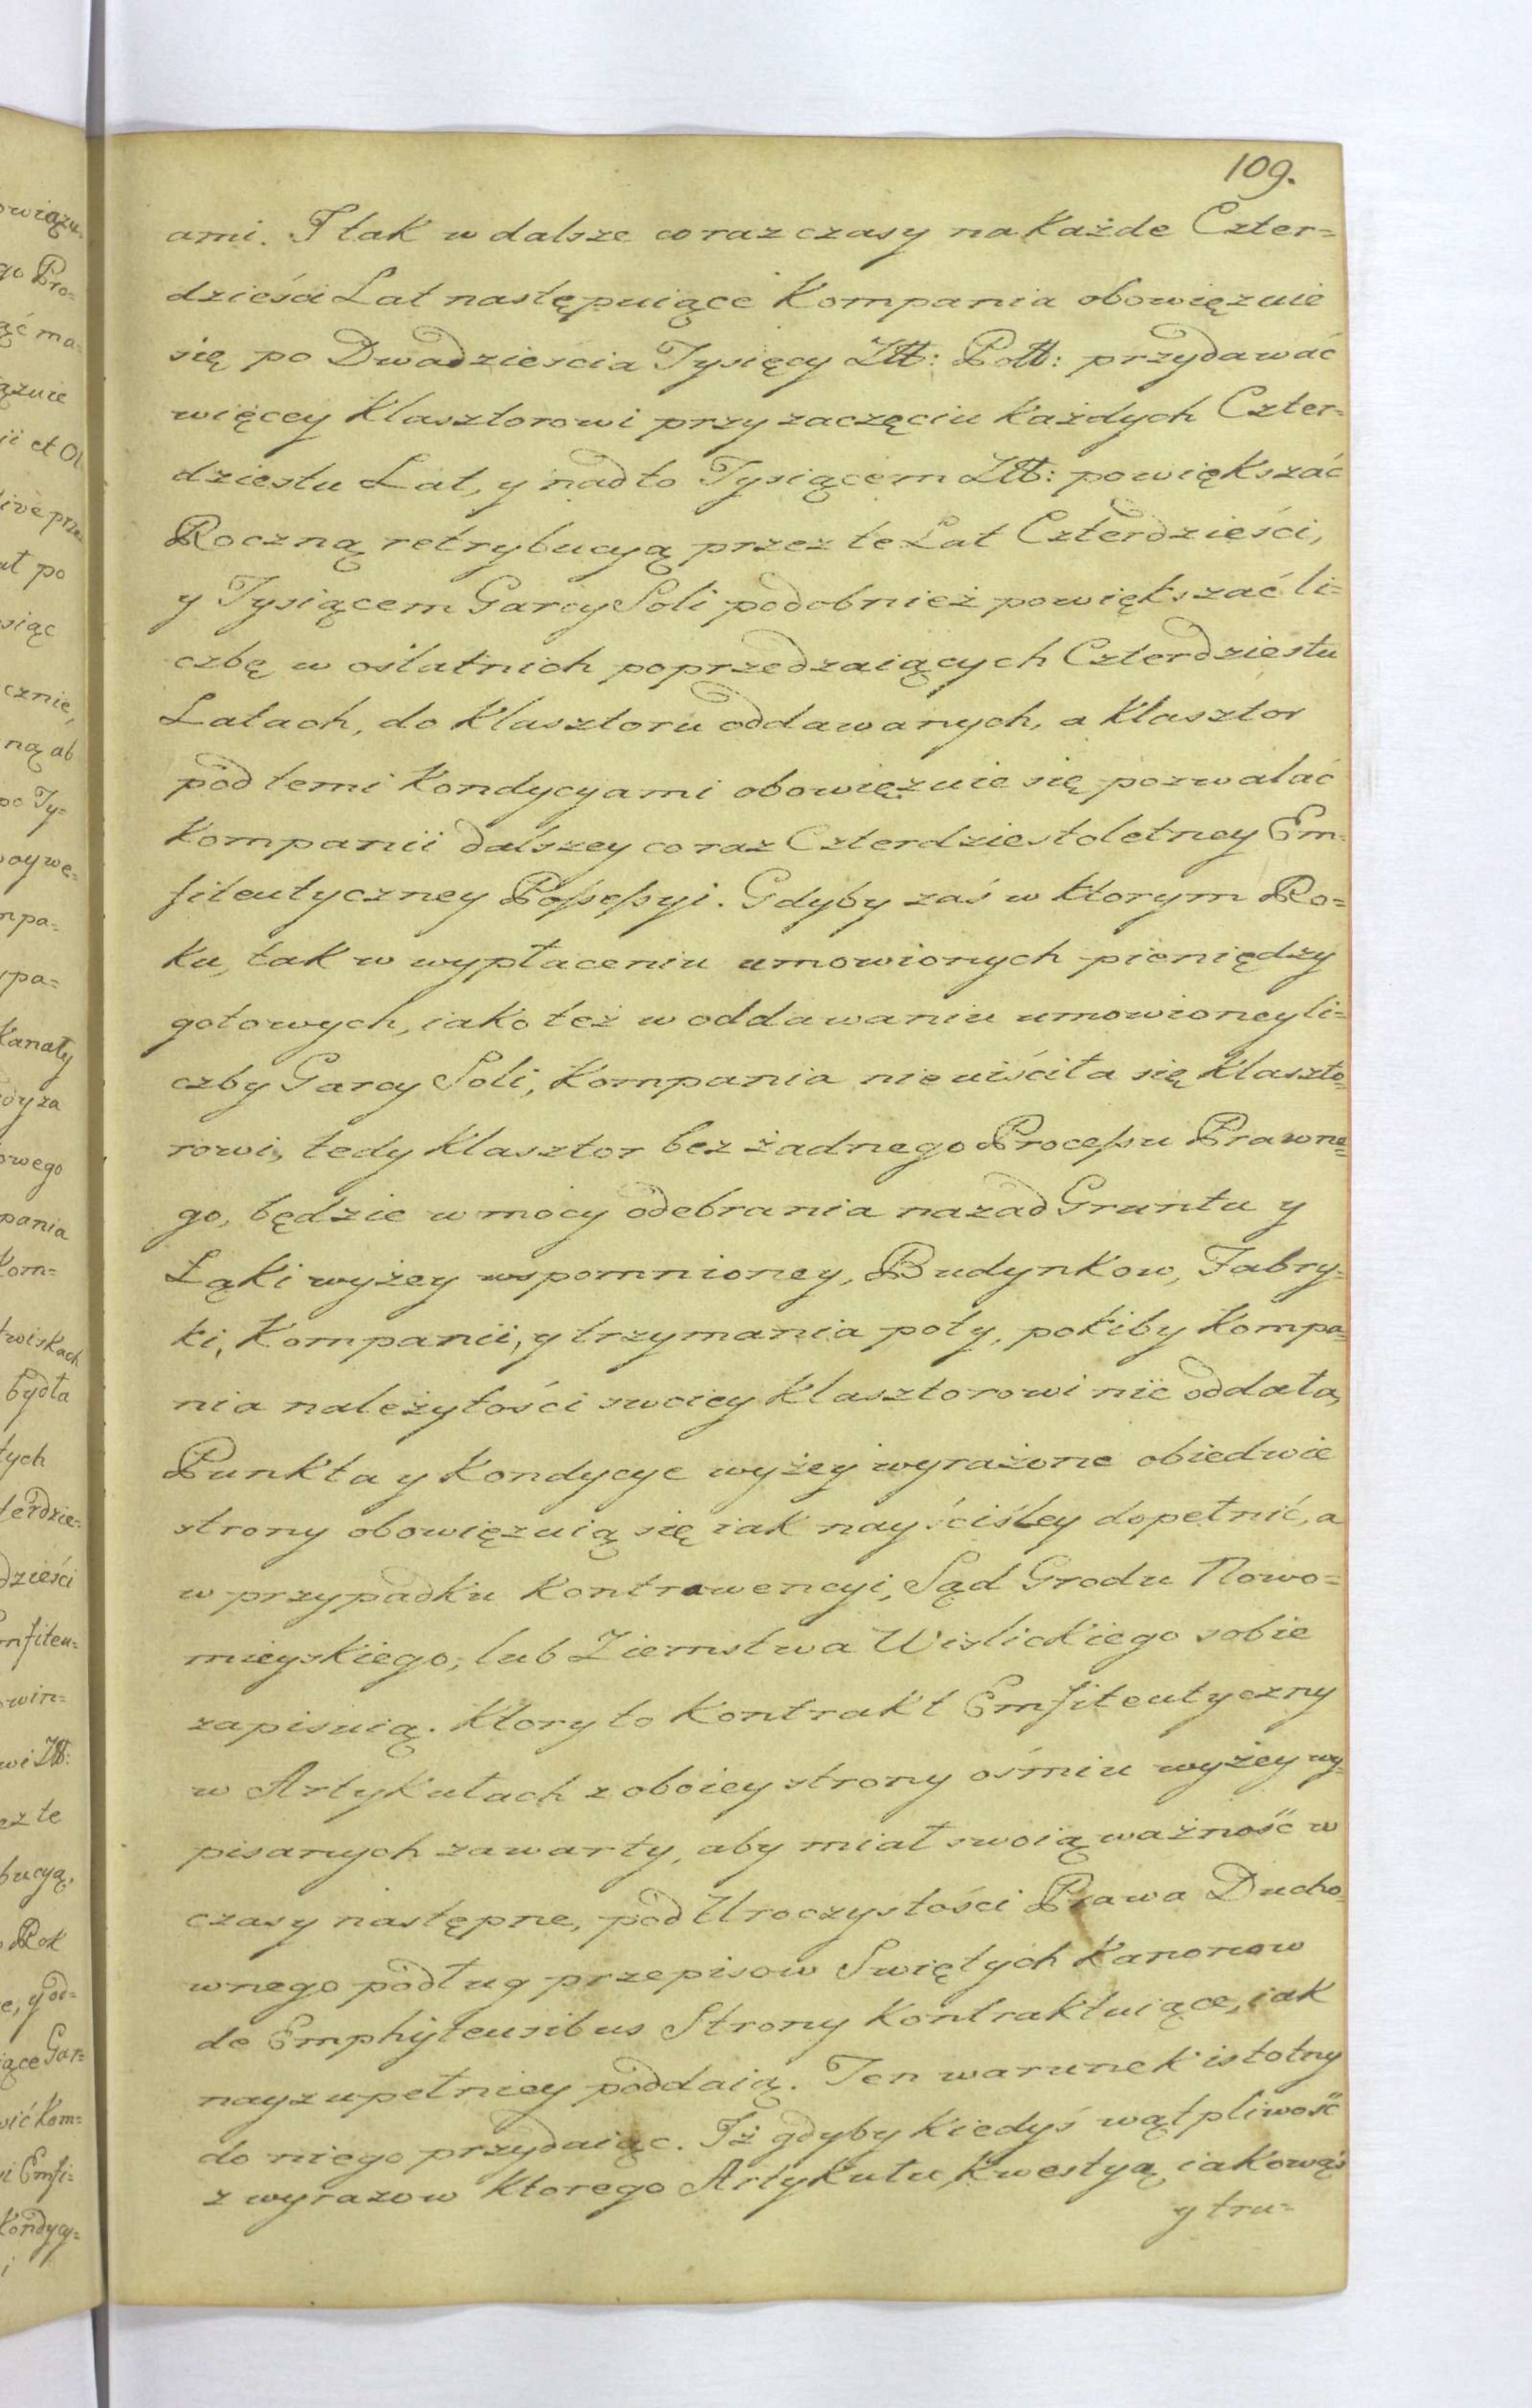 109.
ami. I tak w dalsze coraz czasy na każde Czter=
dzieści Lat następuiące Kompania obowięzuie
się po Dwadzieścia Tysięcy Złł: Poll: przydawać
więcey Klasztorowi przy zaczęciu każdych Czter=
dziestu Lat, y nadto Tysiącem Złł: powiększać
Roczną retrybucyą przez te Lat Czterdzieści,
y Tysiącem Garcy Soli podobnież powiększać li=
czbę w ostatnich poprzedzaiących Czterdziestu
Latach, do Klasztoru oddawanych, a Klasztor
pod temi Kondycyami obowięzuie się pozwalać
Kompanii dalszey coraz Czterdziestoletney Em=
fiteutyczney Possessyi. Gdyby zaś w ktorym Ro=
ku, tak w wypłaceniu umowionych pieniędzy
gotowych, iako też w oddawaniu umowioney li=
czby Garcy Soli, Kompania nie uiściła się Klaszto=
rowi, tedy Klasztor bez żadnego Processu Prawne=
go, będzie w mocy odebrania nazad Gruntu y
Łąki wyżey wspomnioney, Budynkow, Fabry=
ki, Kompanii, y trzymania poty, pokiby Kompa=
nia należytości swoiey Klasztorowi nie oddała,
Punkta y Kondycye wyżey wyrażone obiedwie
strony obowięzuią się iak nayściśley dopełnić, a
w przypadku Kontrawencyi, Sąd Grodu Nowo=
mieyskiego, lub Ziemstwa Wislickiego sobie
zapisuią. Ktory to Kontrakt Emfiteutyczny
w Artykułach z oboiey strony ośmiu wyżey wy=
pisanych zawarty, aby miał swoią ważność w
czasy następne, pod Uroczystości Prawa Ducho=
wnego podług przepisow Swiętych Kanonow
de Emphyteusibus Strony Kontraktuiące, iak
nayzupełniey poddaią. Ten warunek istotny
do niego przydaiąc. Iż gdyby kiedyś wątpliwość
z wyrazow ktorego Artykułu, Kwestyą iakowąś
y tru=